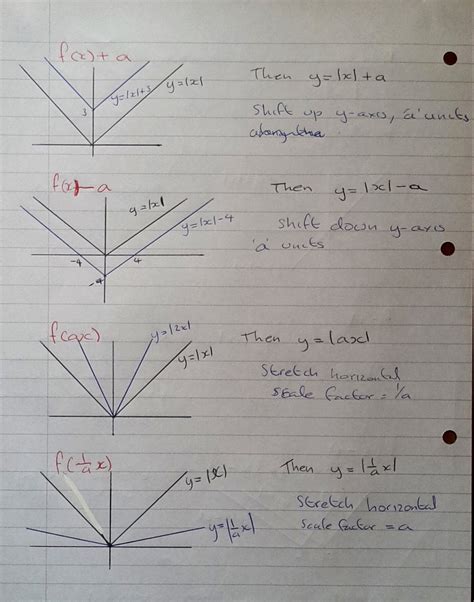 f(x)+a
y=|x|+3
y=|x|
3
Then y=|x|+a
Shift up y-axis, 'a' units
f(x)-a
y=|x|
y=|x|-4
-4
4
-4
Then y=|x|-a
Shift down y-axis
'a' units
f(ax)
y=|2x|
y=|x|
Then y=|ax|
Stretch horizontal
scale factor = 1/a
f(1/a x)
y=|x|
y=|1/a x|
Then y=|1/a x|
Stretch horizontal
scale factor = a